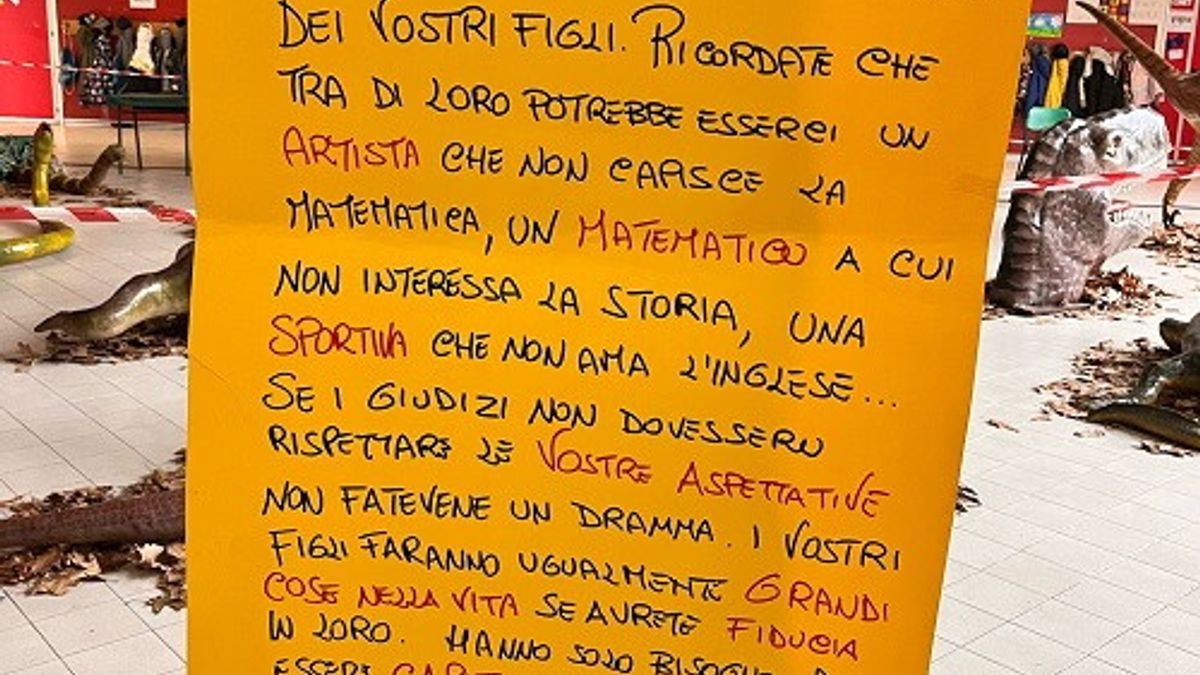 DEI VOSTRI FIGLI. RICORDATE CHE
TRA DI LORO POTREBBE ESSERCI UN
ARTISTA CHE NON CAPISCE LA
MATEMATICA, UN MATEMATICO A CUI
NON INTERESSA LA STORIA, UNA
SPORTIVA CHE NON AMA L'INGLESE...
SE I GIUDIZI NON DOVESSERO
RISPETTARE LE VOSTRE ASPETTATIVE
NON FATEVENE UN DRAMMA. I VOSTRI
FIGLI FARANNO UGUALMENTE GRANDI
COSE NELLA VITA SE AVRETE FIDUCIA
IN LORO. HANNO SOLO
ESSERE